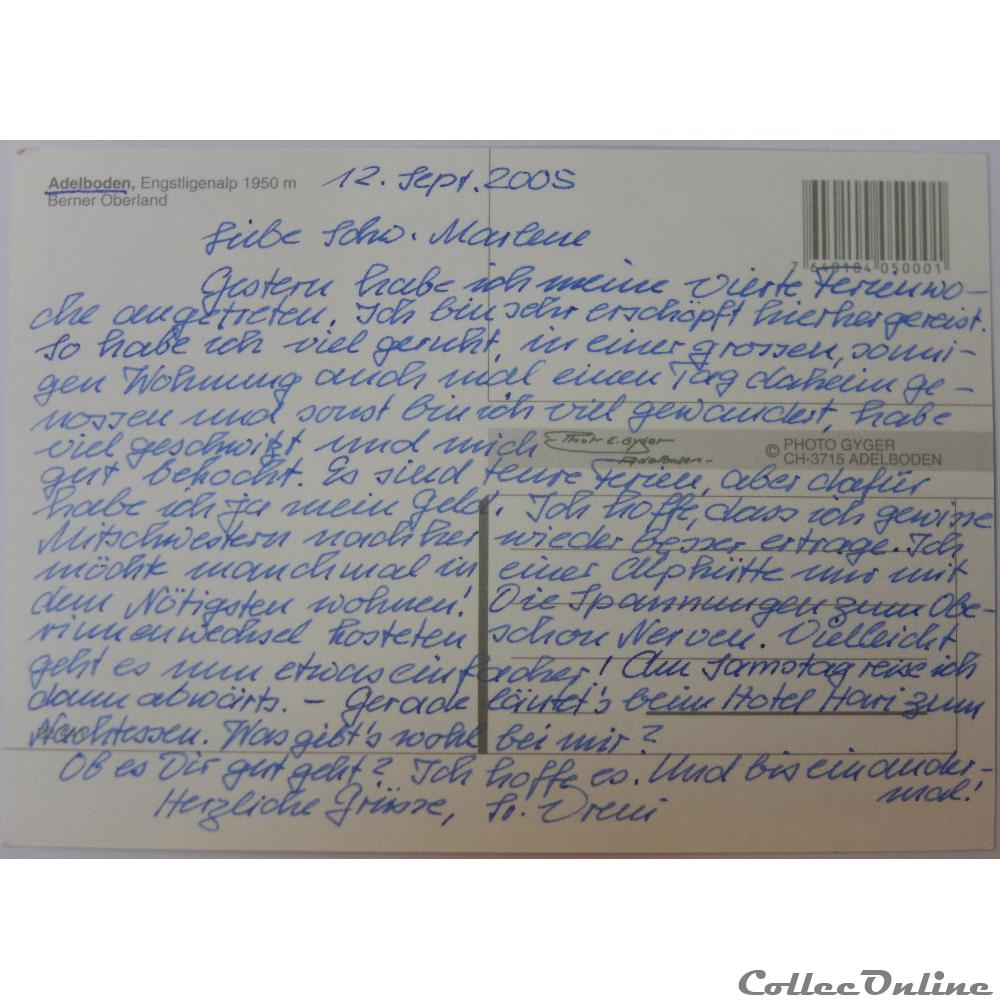 Adelboden, Engstligenalp 1950 m
Berner Oberland
12. Sept. 2005
7 640184 050001
Liebe Schw. Marlene
Gestern habe ich meine vierte Ferienwo-
che angetreten. Ich bin sehr erschöpft hierher gereist.
So habe ich viel geruht, in einer grossen, sonni-
gen Wohnung auch mal einen Tag daheim ge-
nossen und sonst bin ich viel gewandert, habe
viel geschwitzt und mich
gut bekocht. Es sind teure Ferien, aber dafür
Photo E. Gyger
Adelboden
© PHOTO GYGER
CH-3715 ADELBODEN
habe ich ja mein Geld. Ich hoffe, dass ich gewisse
Mitschwestern nachher wieder besser ertrage. Ich
möchte manchmal in einer Alphütte nur mit
dem Nötigsten wohnen! Die Spannungen zum Obe-
rinnenwechsel kosteten schon Nerven. Vielleicht
geht es nun etwas einfacher! Am Samstag reise ich
dann abwärts. – Gerade läutet's beim Hotel Hari zum
Nachtessen. Was gibt's wohl bei mir?
Ob es Dir gut geht? Ich hoffe es. Und bis einander-
mal!
Herzliche Grüsse, Sr. Vreni
CollecOnline